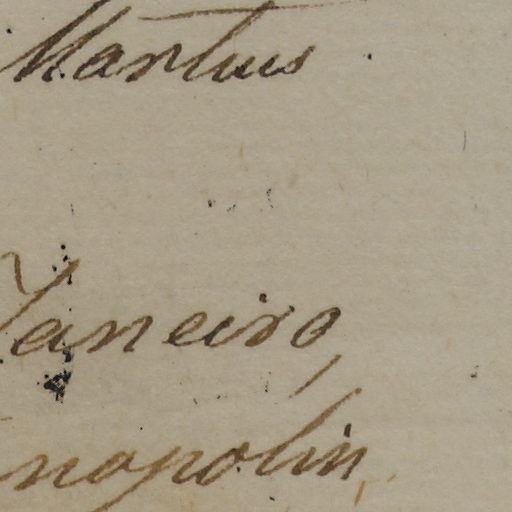 Martius
Janeiro,
nopolin,